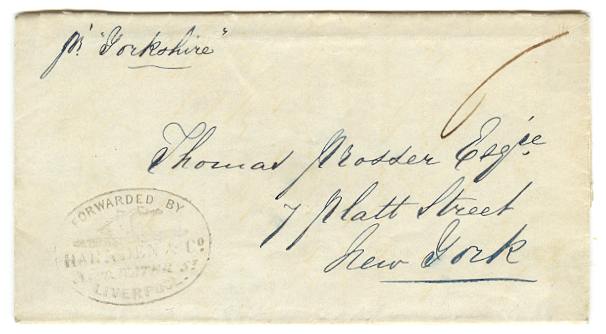 pr. "Yorkshire"
6
Thomas Prosser Esqre
7 Platt Street
New York
FORWARDED BY
HARNDEN & Co
ST
LIVERPOOL